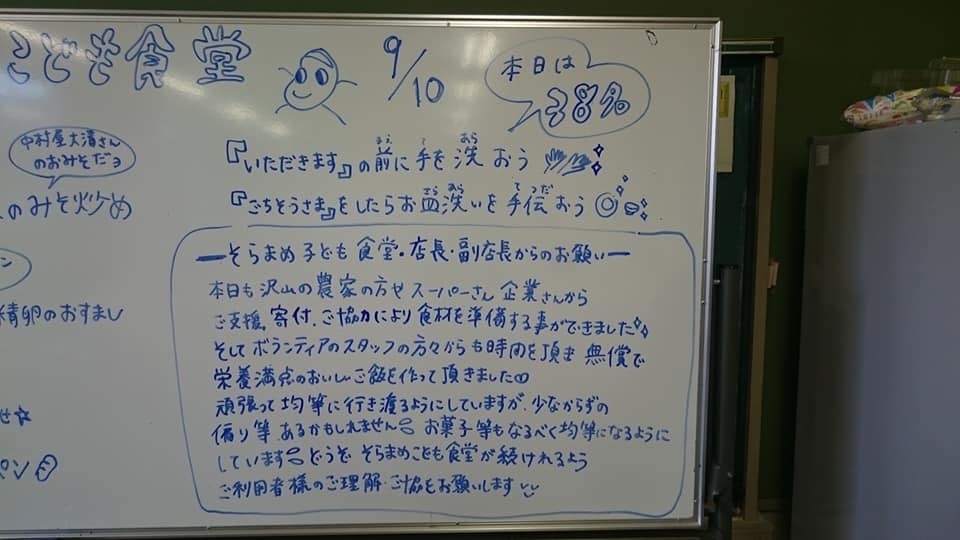 こども食堂
9/10
本日は
38名
中村屋大清さん
のおみそだョ
のみそ炒め
ン
精卵のおすまし
せ☆
パン
『いただきます』の前に手を洗おう
まえ て あら
『ごちそうさま』をしたらお皿洗いを手伝おう
さら あら てつだ
ーそらまめ子ども食堂・店長・副店長からのお願いー
本日も沢山の農家の方やスーパーさん企業さんから
ご支援、寄付、ご協力により食材を準備する事ができました
そしてボランティアのスタッフの方々からも時間を頂き無償で
栄養満点のおいしいご飯を作って頂きました
頑張って均等に行き渡るようにしていますが、少なからずの
偏り等、あるかもしれません お菓子等もなるべく均等になるように
しています どうぞ そらまめこども食堂が続けれるよう
ご利用者様のご理解・ご協をお願いします